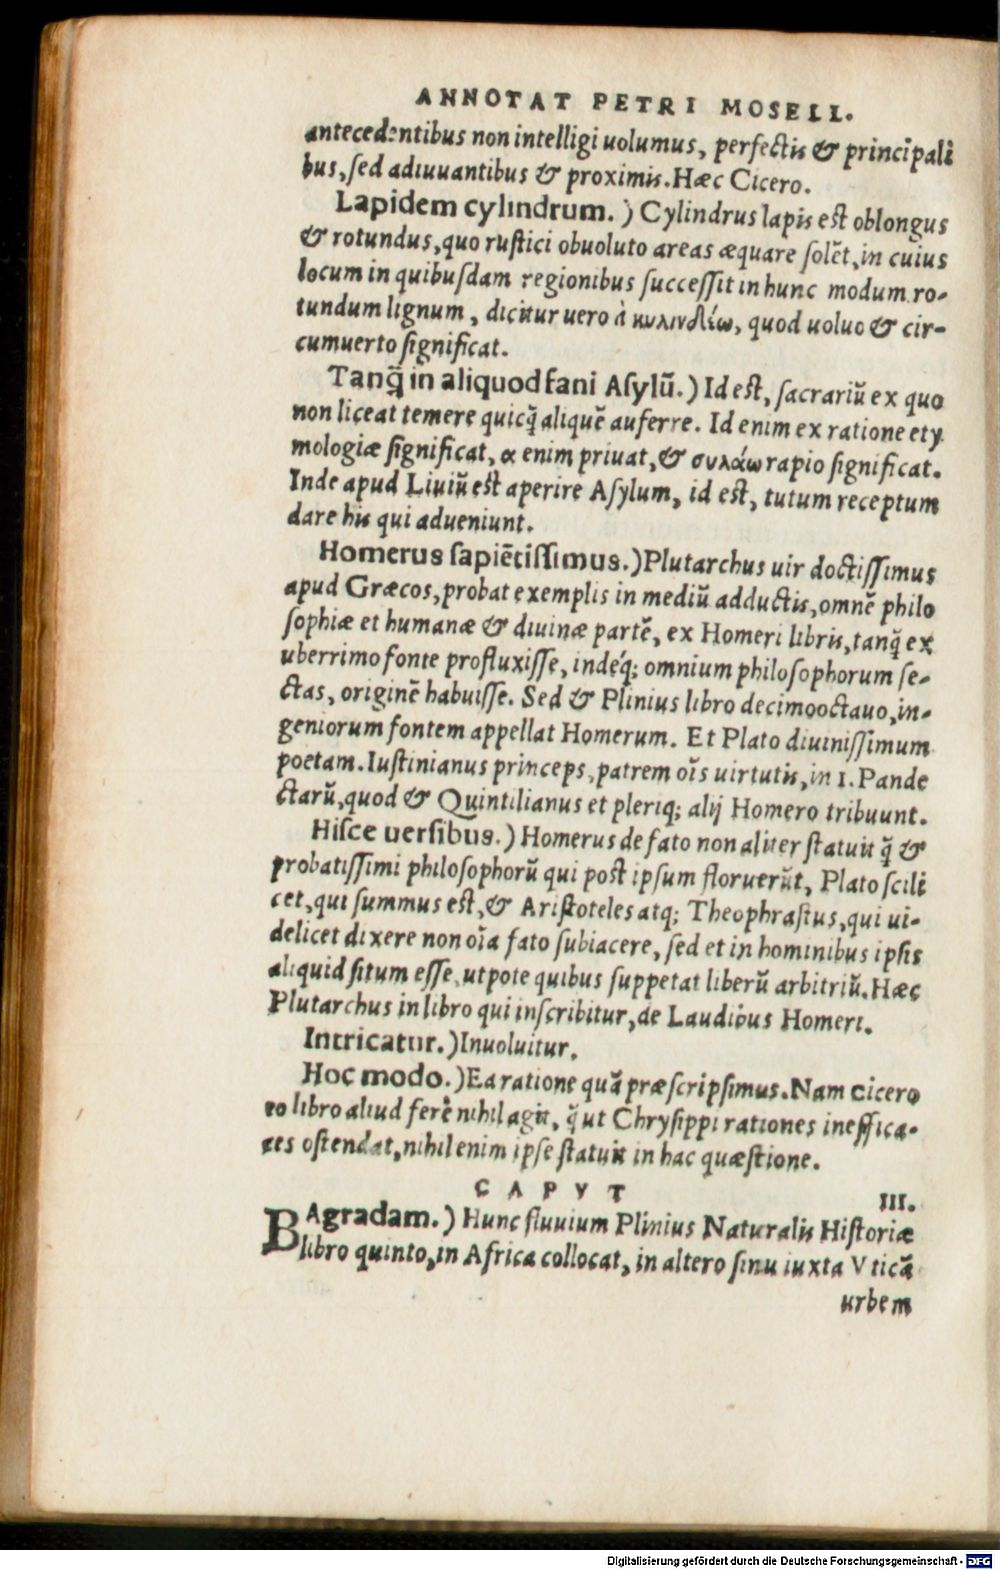 ANNOTAT PETRI MOSELL.
antecedentibus non intelligi uolumus, perfectis & principali
bus, sed adiuuantibus & proximis. Hæc Cicero.
Lapidem cylindrum.) Cylindrus lapis est oblongus
& rotundus, quo rustici obuoluto areas æquare solẽt, in cuius
locum in quibusdam regionibus successit in hunc modum ro-
tundum lignum, dicitur uero à κυλινδέω, quod uoluo & cir-
cumuerto significat.
Tanq̃ in aliquod fani Asylũ.) Id est, sacrariũ ex quo
non liceat temere quicq̃ aliquẽ auferre. Id enim ex ratione ety
mologiæ significat, α enim priuat, & συλάω rapio significat.
Inde apud Liuiũ est aperire Asylum, id est, tutum receptum
dare his qui adueniunt.
Homerus sapiẽtissimus.) Plutarchus uir doctissimus
apud Græcos, probat exemplis in mediũ adductis, omnẽ philo
sophiæ et humanæ & diuinæ partẽ, ex Homeri libris, tanq̃ ex
uberrimo fonte profluxisse, indéq; omnium philosophorum se-
ctas, originẽ habuisse. Sed & Plinius libro decimooctauo, in-
geniorum fontem appellat Homerum. Et Plato diuinissimum
poetam. Iustinianus princeps, patrem oĩs uirtutis, in 1. Pande
ctarũ, quod & Quintilianus et pleriq; alij Homero tribuunt.
Hisce uersibus.) Homerus de fato non aliter statuit q̃ &
probatissimi philosophorũ qui post ipsum floruerũt, Plato scili
cet, qui summus est, & Aristoteles atq; Theophrastus, qui ui-
delicet dixere non oĩa fato subiacere, sed et in hominibus ipsis
aliquid situm esse, utpote quibus suppetat liberũ arbitriũ. Hæc
Plutarchus in libro qui inscribitur, de Laudibus Homeri.
Intricatur.) Inuoluitur.
Hoc modo.) Ea ratione quã præscripsimus. Nam Cicero
eo libro aliud ferè nihil agit, q̃ ut Chrysippi rationes ineffica-
ces ostendat, nihil enim ipse statuit in hac quæstione.
CAPVT III.
BAgradam.) Hunc fluuium Plinius Naturalis Historiæ
libro quinto, in Africa collocat, in altero sinu iuxta Vticã
urbem
Digitalisierung gefördert durch die Deutsche Forschungsgemeinschaft - DFG